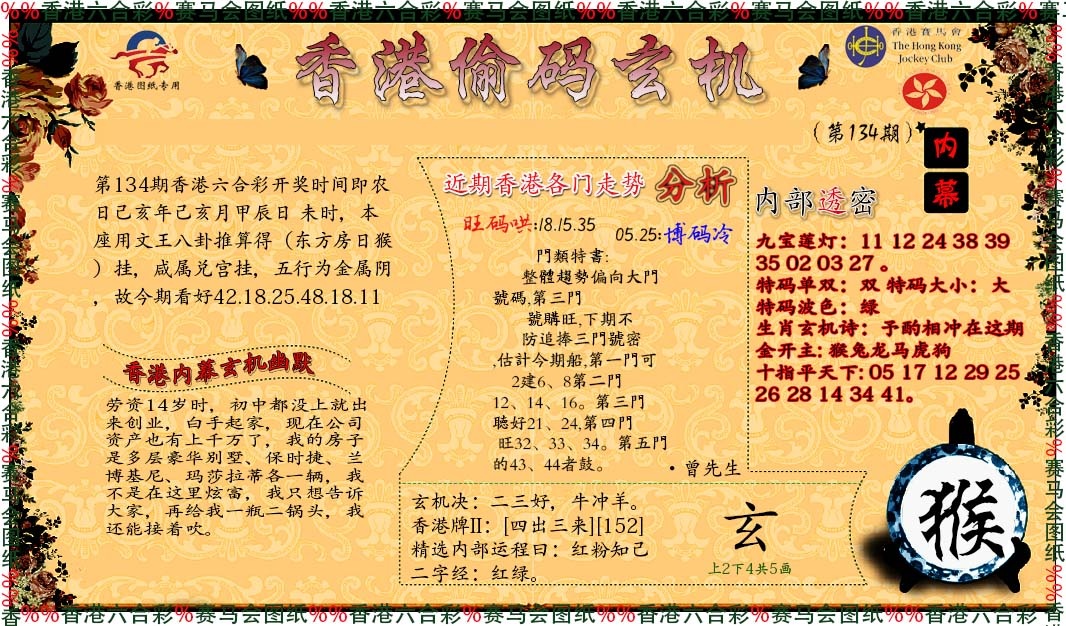 %%香港六合彩%赛马会图纸%%香港六合彩%赛马会图纸%%香港六合彩%赛马会图纸%%香港六合彩%赛马会图纸%%香港六合彩%赛
香港图纸专用
香港偷码玄机
香港賽馬會
The Hong Kong
Jockey Club
(第134期)
内
幕
第134期香港六合彩开奖时间即农
日己亥年己亥月甲辰日 未时，本
座用文王八卦推算得（东方房日猴
）挂，咸属兑宫挂，五行为金属阴
，故今期看好42.18.25.48.18.11
香港内幕玄机幽默
劳资14岁时，初中都没上就出
来创业，白手起家，现在公司
资产也有上千万了，我的房子
是多层豪华别墅、保时捷、兰
博基尼、玛莎拉蒂各一辆，我
不是在这里炫富，我只想告诉
大家，再给我一瓶二锅头，我
还能接着吹。
近期香港各门走势 分析
旺码哄:18.15.35
05.25:博码冷
門類特書:
整體趨勢偏向大門
號碼,第三門
號購旺,下期不
防追捧三門號密
,估計今期船,第一門可
2建6、8第二門
12、14、16。第三門
聽好21、24,第四門
旺32、33、34。第五門
的43、44者鼓。
·曾先生
玄机决：二三好，牛冲羊。
香港牌II：[四出三来][152]
精选内部运程曰：红粉知己
二字经：红绿。
玄
上2下4共5画
内部透密
九宝莲灯：11 12 24 38 39
35 02 03 27 。
特码单双：双 特码大小：大
特码波色：绿
生肖玄机诗：予酌相冲在这期
金开主: 猴兔龙马虎狗
十指平天下: 05 17 12 29 25
26 28 14 34 41。
猴
香%%香港六合彩%赛马会图纸%%香港六合彩%赛马会图纸%%香港六合彩%赛马会图纸%%香港六合彩%赛马会图纸%%香港六合彩